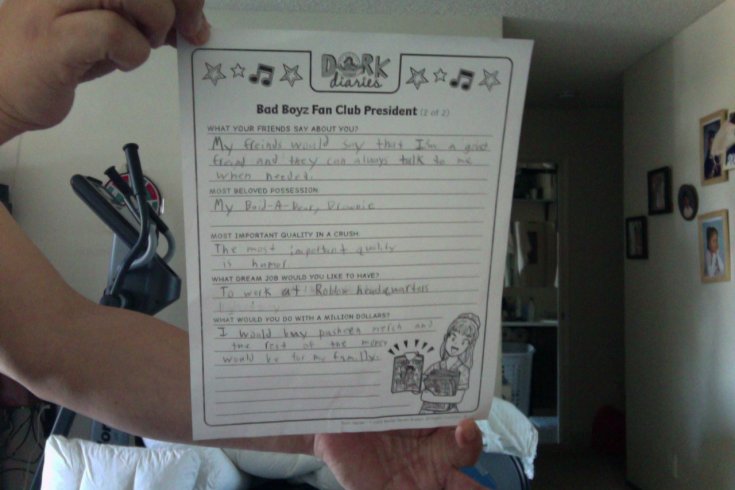 DORK
diaries
Bad Boyz Fan Club President (2 of 2)
WHAT YOUR FRIENDS SAY ABOUT YOU?
My freinds would say that I'm a great
freind and they can always talk to me
when needed.
MOST BELOVED POSSESSION
My Buid-A-Bear, Brownie
MOST IMPORTANT QUALITY IN A CRUSH
The most important quality
is humor
WHAT DREAM JOB WOULD YOU LIKE TO HAVE?
To work at Roblox headquarters
WHAT WOULD YOU DO WITH A MILLION DOLLARS?
I would buy pusheen merch and
the rest of the money
would be for my family.